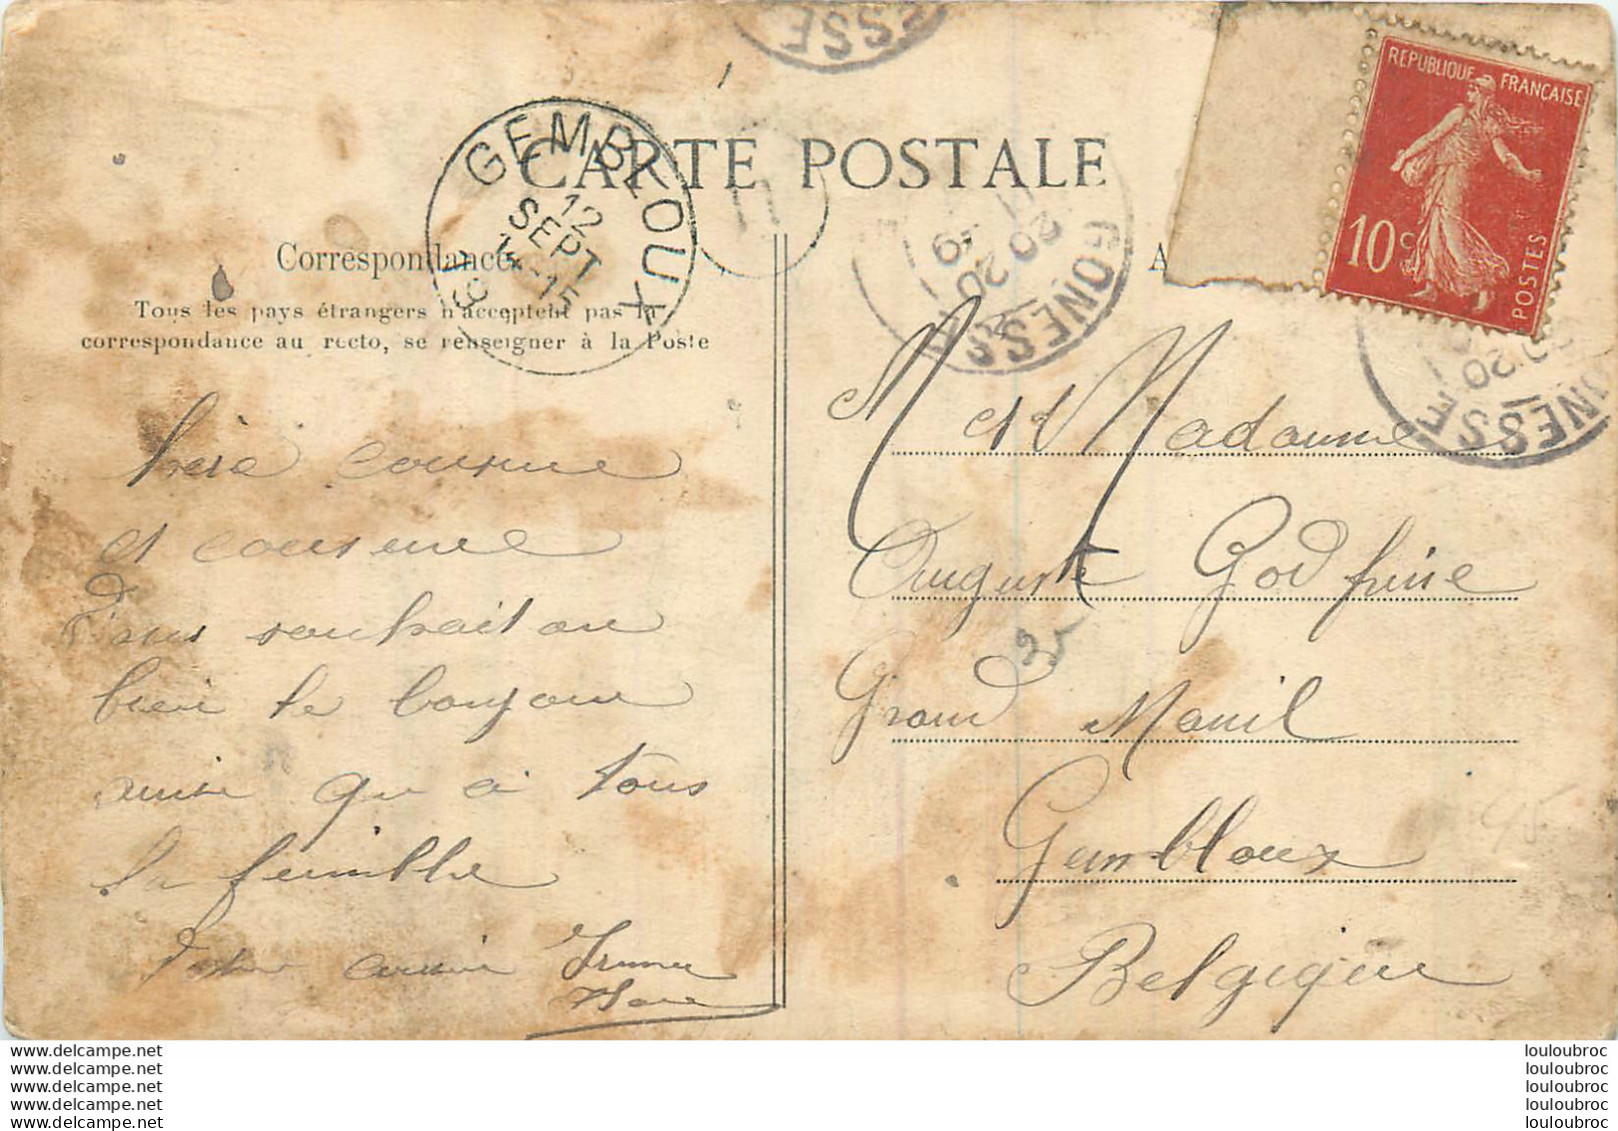 CARTE POSTALE
Correspondance
Tous les pays étrangers n'acceptent pas la
correspondance au recto, se renseigner à la Poste
GEMBLOUX
12
SEPT
14-15
19
GONESSE
20 20
REPUBLIQUE FRANÇAISE
10c
POSTES
GONESSE
20
ESSE
cousine
et cousine
souhaitan
bien le bonjour
que à tous
la familble
cousin
M et Madame
Auguste Godfrine
Grand Manil
Gembloux
Belgique
45
www.delcampe.net
www.delcampe.net
www.delcampe.net
www.delcampe.net
www.delcampe.net
louloubroc
louloubroc
louloubroc
louloubroc
louloubroc